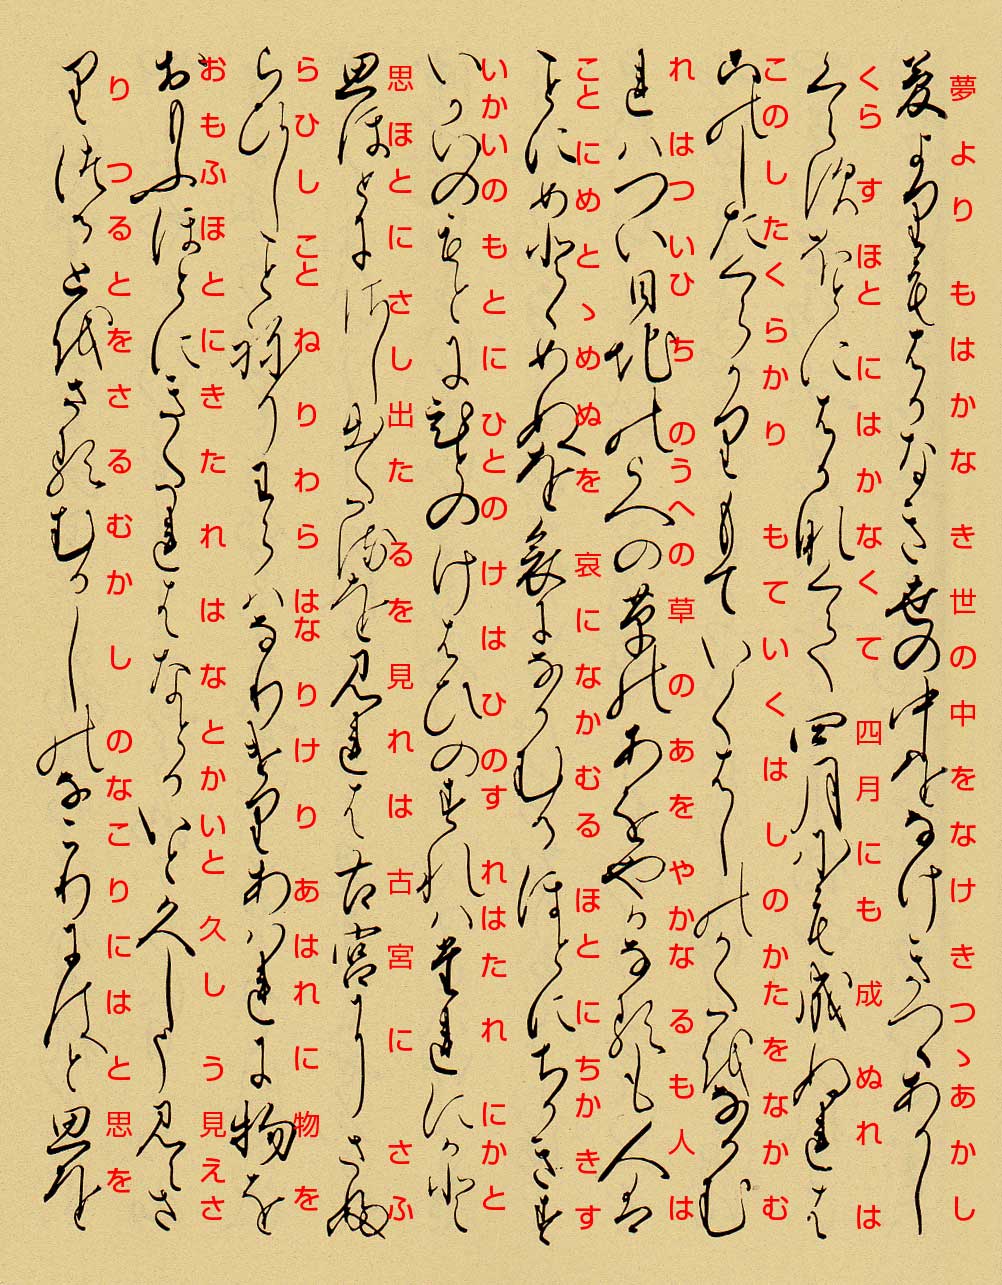 夢よりもはかなき世の中をなけきつゝあかし
くらすほとにはかなくて四月にも成ぬれは
このしたくらかりもていくはしのかたをなかむ
れはついひちのうへの草のあをやかなるも人は
ことにめとゝめぬを哀になかむるほとにちかきす
いかいのもとにひとのけはひのすれはたれにかと
思ほとにさし出たるを見れは古宮にさふ
らひしことねりわらはなりけりあはれに物を
おもふほとにきたれはなとかいと久しう見えさ
りつるとをさるむかしのなこりにはと思を